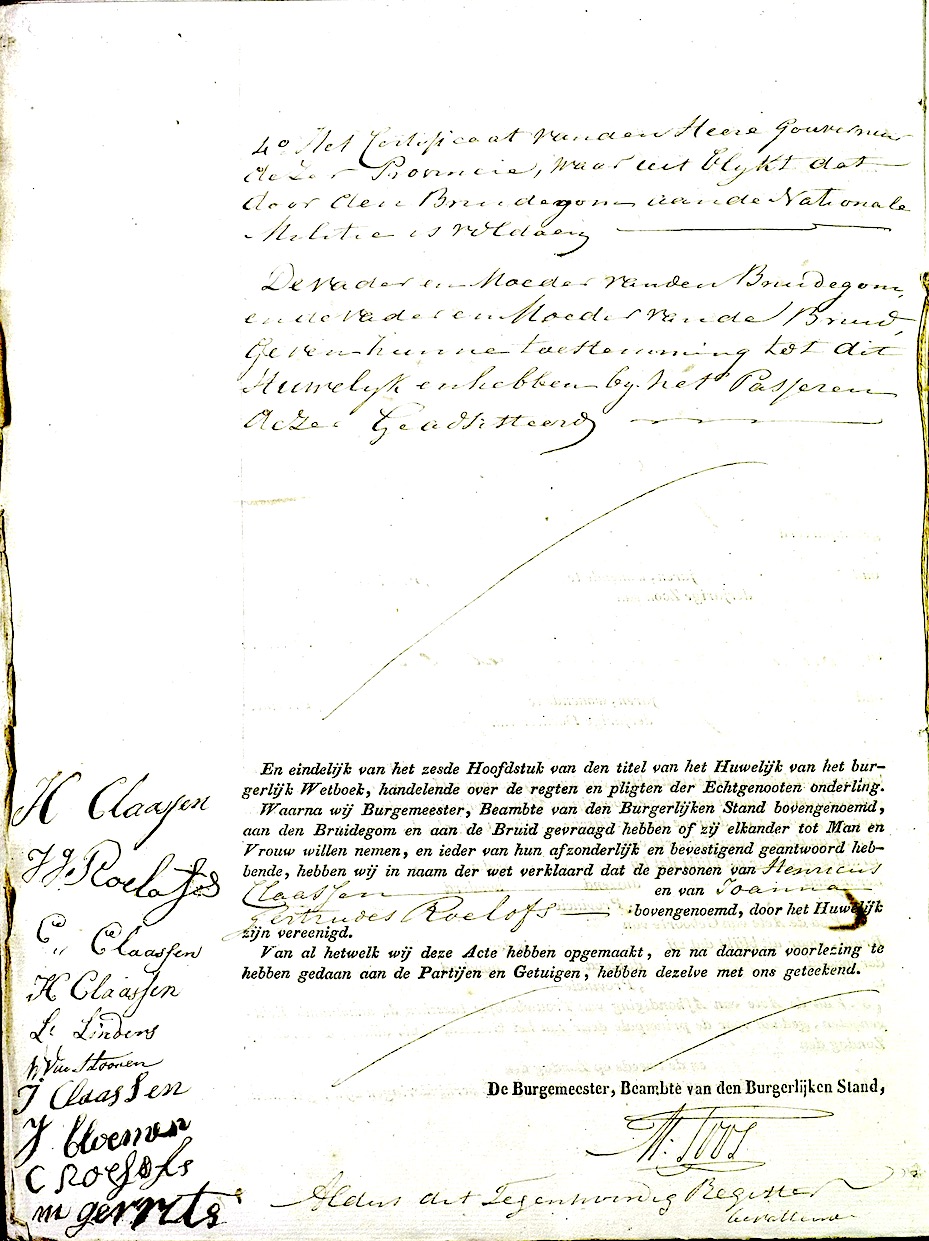 4o Het Certificaat van den Heere Gouverneur
dezer Provincie, waar uit blykt dat
door den Bruidegom aan de Nationale
Militie is voldaen
De vader en Moeder van den Bruidegom,
en de vader en Moeder van de Bruid,
Geven hunne toestemming tot dit
Huwelyk en hebben by het Passeren
dezer Geadsisteerd
En eindelijk van het zesde Hoofdstuk van den titel van het Huwelijk van het bur-
gerlijk Wetboek, handelende over de regten en pligten der Echtgenooten onderling.
Waarna wij Burgemeester, Beambte van den Burgerlijken Stand bovengenoemd,
aan den Bruidegom en aan de Bruid gevraagd hebben of zij elkander tot Man en
Vrouw willen nemen, en ieder van hun afzonderlijk en bevestigend geantwoord heb-
bende, hebben wij in naam der wet verklaard dat de personen van Henricus
Claassen en van Joanna
Gertrudes Roelofs bovengenoemd, door het Huwelijk
zijn vereenigd.
Van al hetwelk wij deze Acte hebben opgemaakt, en na daarvan voorlezing te
hebben gedaan aan de Partijen en Getuigen, hebben dezelve met ons geteekend.
H Claassen
J G Roelofs
C Claassen
H Claassen
L Linders
J Claassen
J bloemen
C Roelofs
m gerrits
De Burgemeester, Beambte van den Burgerlijken Stand,
Aldus dit Tegenwoordig Register